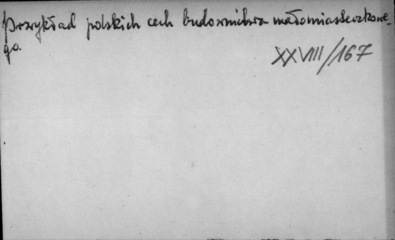 Przykład polskich cech budownictwa małomiasteczkowe-
go.
XXVIII/167